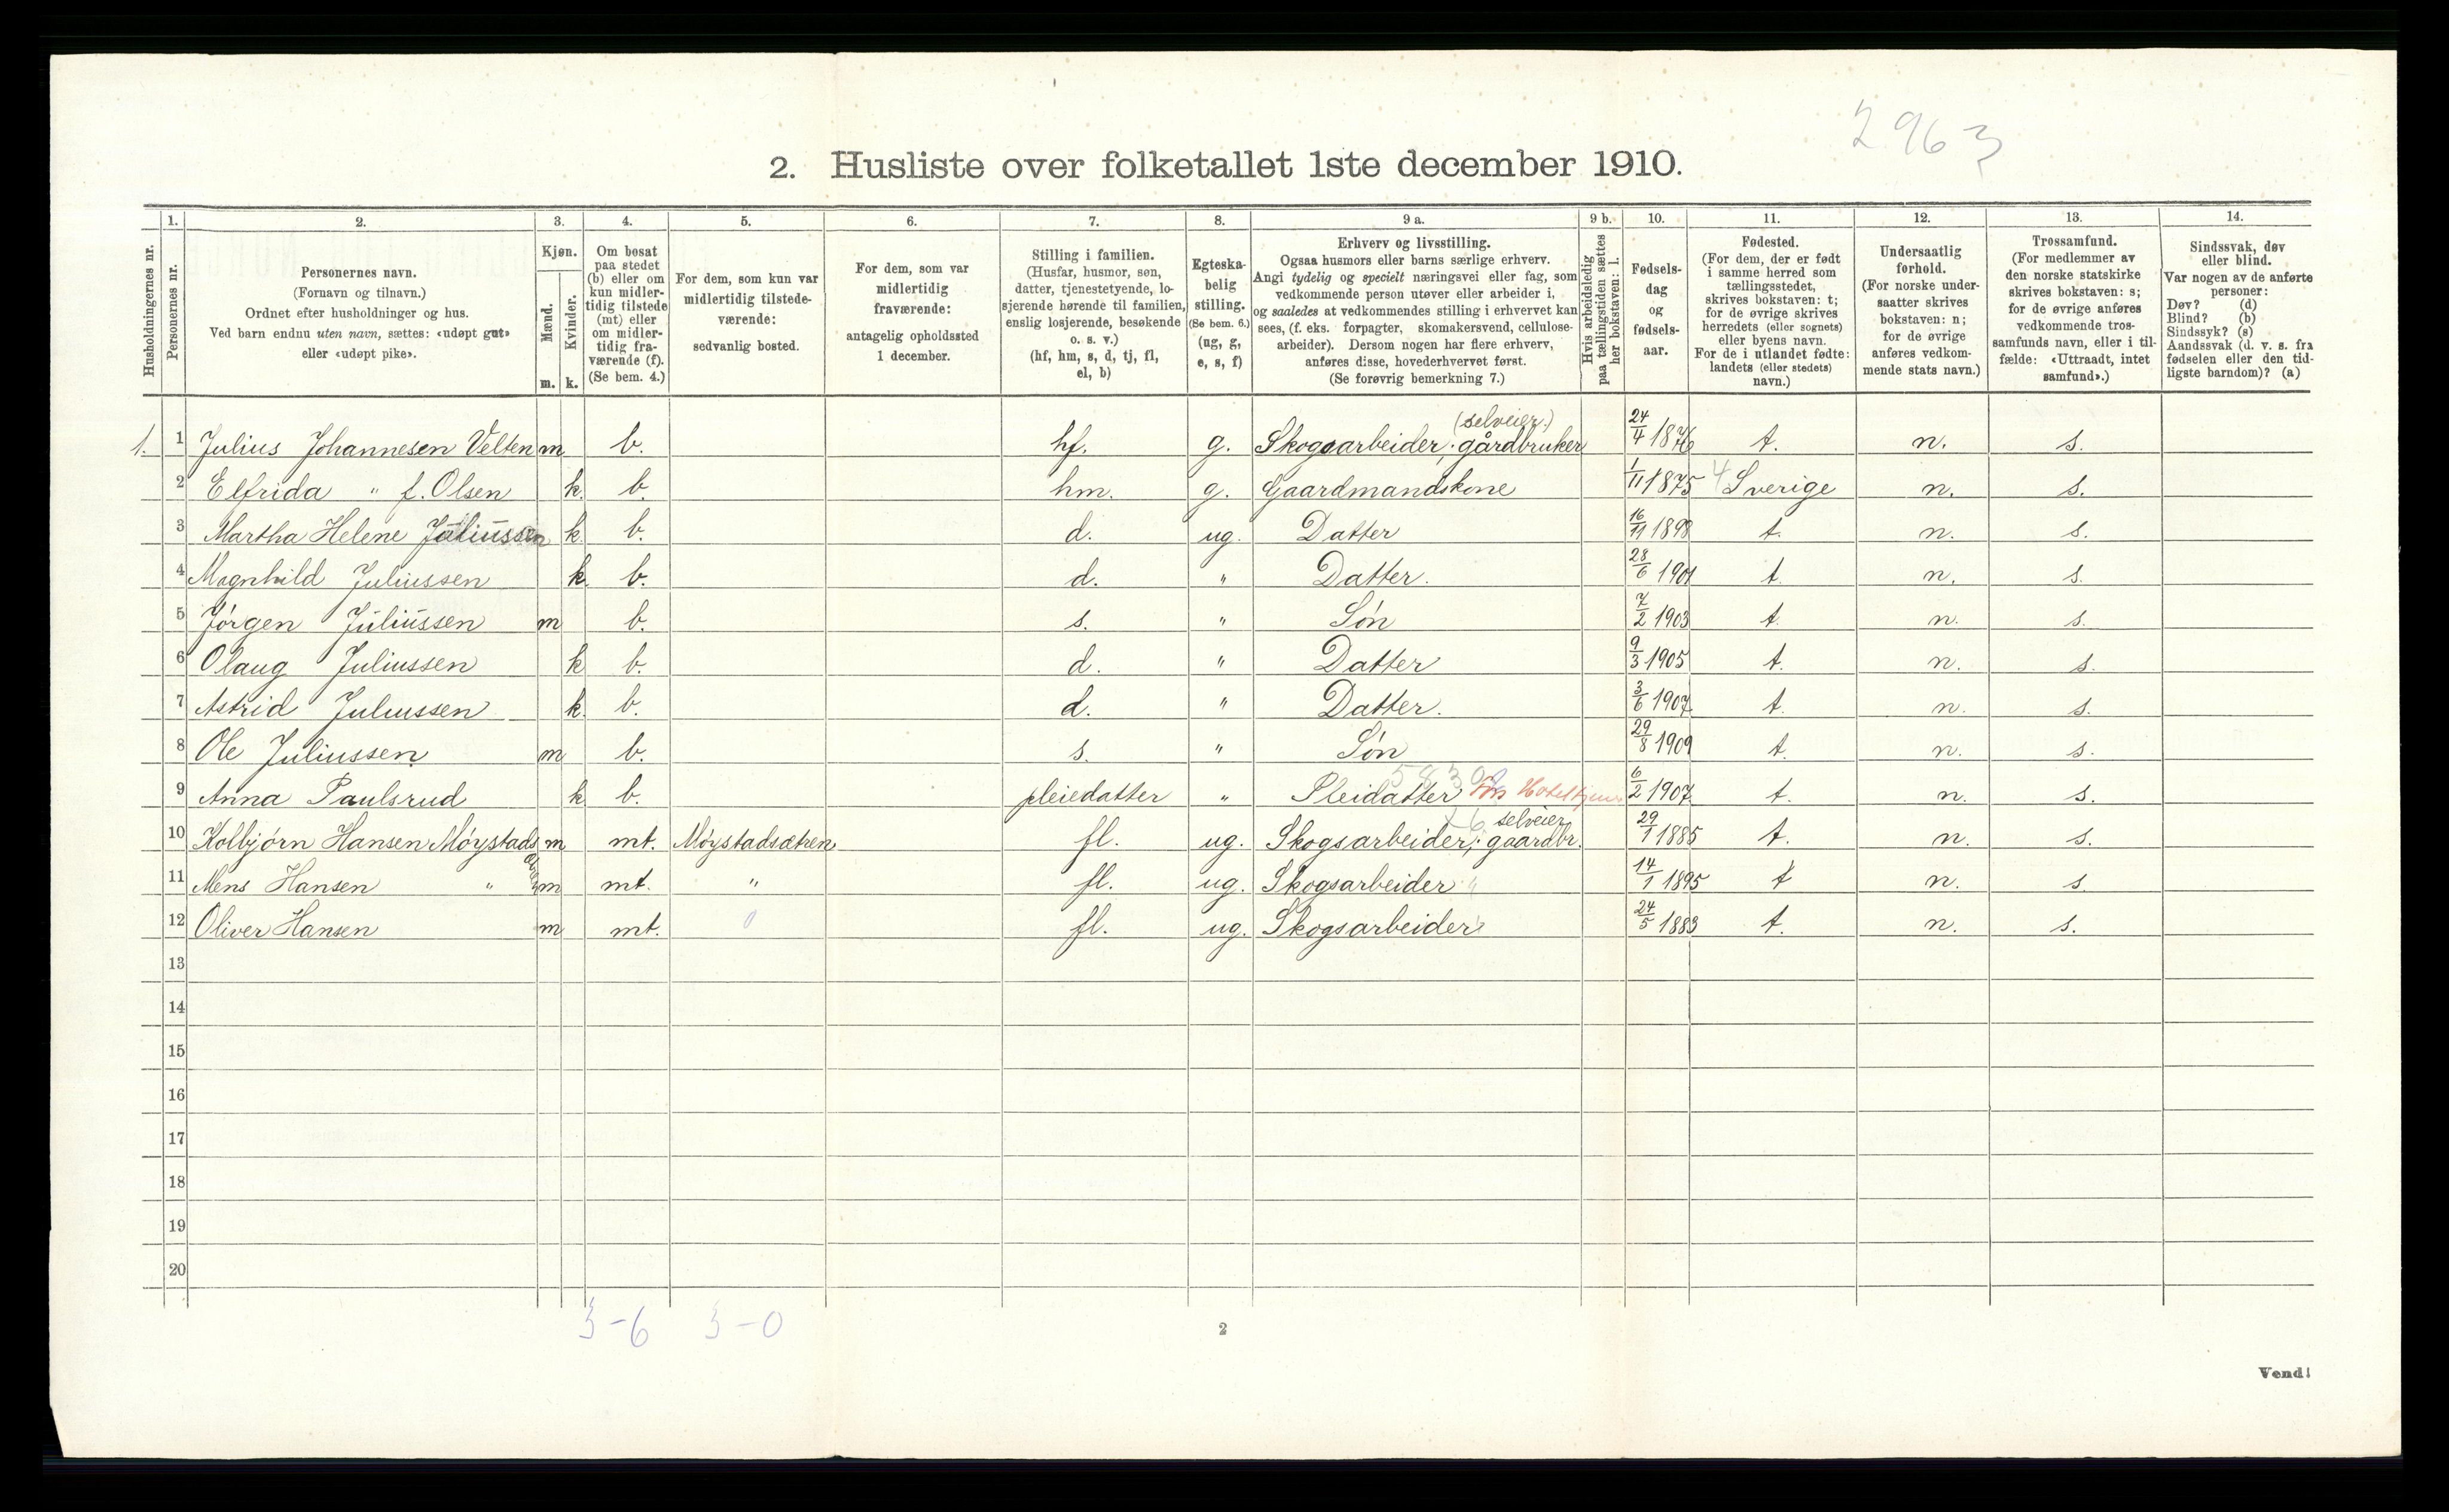 2963
2. Husliste over folketallet 1ste december 1910.
Husholdningernes nr.
1.
Personernes nr.
2.
Personernes navn.
(Fornavn og tilnavn.)
Ordnet efter husholdninger og hus.
Ved barn endnu uten navn, sættes: «udøpt gut»
eller «udøpt pike».
3.
Kjøn.
Mænd.
Kvinder.
m. k.
4.
Om bosat
paa stedet
(b) eller om
kun midler-
tidig tilstede
(mt) eller
om midler-
tidig fra-
værende (f).
(Se bem. 4.)
5.
For dem, som kun var
midlertidig tilstede-
værende:
sedvanlig bosted.
6.
For dem, som var
midlertidig
fraværende:
antagelig opholdssted
1 december.
7.
Stilling i familien.
(Husfar, husmor, søn,
datter, tjenestetyende, lo-
sjerende hørende til familien,
enslig losjerende, besøkende
o. s. v.)
(hf, hm, s, d, tj, fl,
el, b)
8.
Egteska-
belig
stilling.
(Se bem. 6.)
(ug, g,
e, s, f)
9 a.
Erhverv og livsstilling.
Ogsaa husmors eller barns særlige erhverv.
Angi tydelig og specielt næringsvei eller fag, som
vedkommende person utøver eller arbeider i,
og saaledes at vedkommendes stilling i erhvervet kan
sees, (f. eks. forpagter, skomakersvend, cellulose-
arbeider). Dersom nogen har flere erhverv,
anføres disse, hovederhvervet først.
(Se forøvrig bemerkning 7.)
9 b.
Hvis arbeidsledig
paa tællingstiden sættes
her bokstaven: l.
10.
Fødsels-
dag
og
fødsels-
aar.
11.
Fødested.
(For dem, der er født
i samme herred som
tællingsstedet,
skrives bokstaven: t;
for de øvrige skrives
herredets (eller sognets)
eller byens navn.
For de i utlandet fødte:
landets (eller stedets)
navn.)
12.
Undersaatlig
forhold.
(For norske under-
saatter skrives
bokstaven: n;
for de øvrige
anføres vedkom-
mende stats navn.)
13.
Trossamfund.
(For medlemmer av
den norske statskirke
skrives bokstaven: s;
for de øvrige anføres
vedkommende tros-
samfunds navn, eller i til-
fælde: «Uttraadt, intet
samfund».)
14.
Sindssvak, døv
eller blind.
Var nogen av de anførte
personer:
Døv? (d)
Blind? (b)
Sindssyk? (s)
Aandssvak (d. v. s. fra
fødselen eller den tid-
ligste barndom)? (a)
(selveier)
1. 1 Julius Johannesen Velten m b. hf. g. Skogsarbeider; gårdbruker 24/4 1876 t. n. s.
2 Elfrida " f. Olsen k. b. hm. g. Gaardmandskone 1/11 1875 4 Sverige n. s.
3 Martha Helene Juliussen k. b. d. ug. Datter 16/11 1898 t. n. s.
4 Magnhild Juliussen k. b. d. " Datter. 28/6 1901 t. n. s.
5 Jørgen Juliussen m b. s. " Søn 7/2 1903 t. n. s.
6 Olaug Juliussen k b. d. " Datter 9/3 1905 t. n. s.
7 Astrid Juliussen k. b. d. " Datter. 3/6 1907 t. n. s.
8 Ole Juliussen m b. s. " Søn 29/8 1909 t. n. s.
9 Anna Paulsrud k b. pleiedatter " Pleidatter 6/2 1907 t. n. s.
selveier
10 Kolbjørn Hansen Møystads m mt. Møystadsætren fl. ug. Skogsarbeider; gaardbr. 29/1 1885 t. n. s.
11 Mens Hansen " m mt. " fl. ug. Skogsarbeider 14/1 1895 t n. s
12 Oliver Hansen m mt. 0 fl. ug. Skogsarbeider 24/5 1883 t. n. s.
13
14
15
16
17
18
19
20
3-6 3-0
2
Vend!